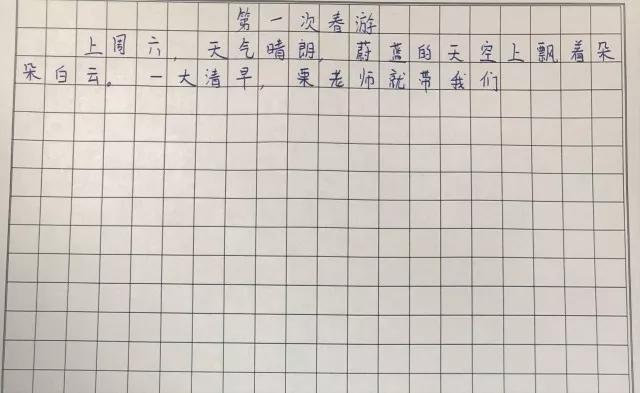 第一次春游
上周六，天气晴朗，蔚蓝的天空上飘着朵
朵白云。一大清早，栗老师就带我们